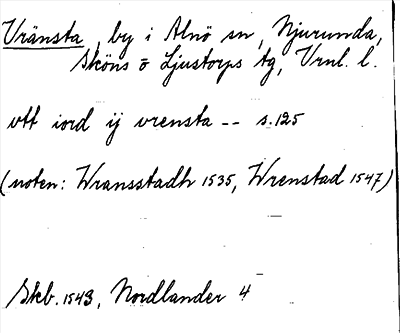 Vränsta, by i Alnö sn, Njurunda,
Sköns o Ljustorps tg, Vrnl. l.
vtt iord ij vrensta -- s.125
(noten: Wransstadh 1535, Wrenstad 1547)
Skb. 1543, Nordlander 4